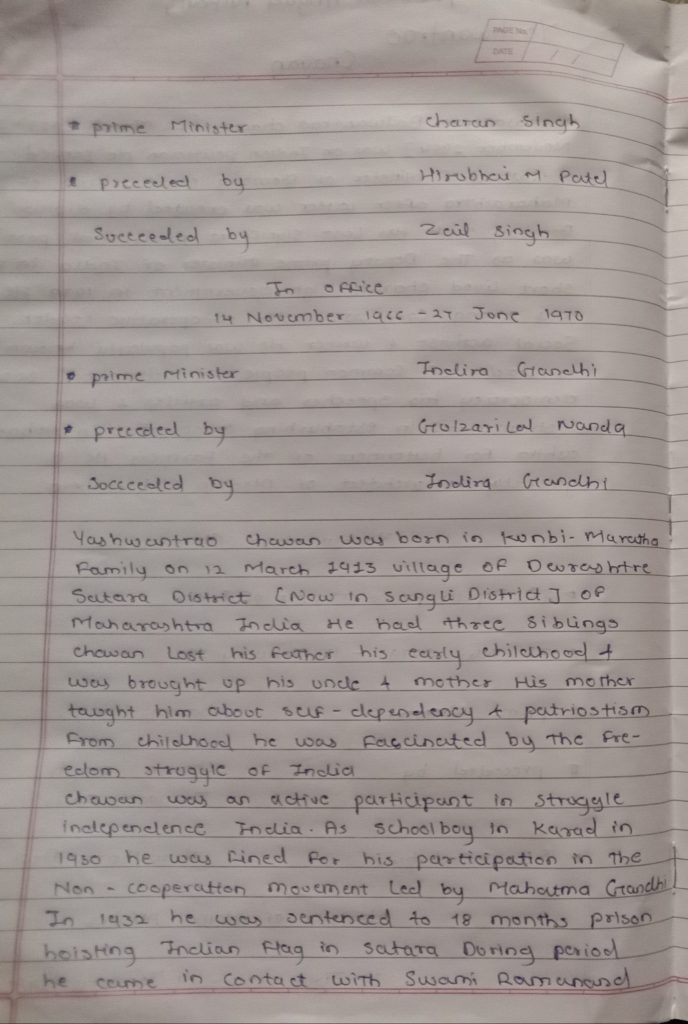 PAGE No.
DATE / /
* prime Minister Charan Singh
* preceded by Hirubhai M Patel
Succeeded by Zail Singh
In office
14 November 1966 - 27 June 1970
* prime Minister Indira Gandhi
* preceded by Gulzarilal Nanda
Succeeded by Indira Gandhi
Yashwantrao Chavan was born in Kunbi-Maratha
Family on 12 March 1913 village of
Satara District [Now in Sangli District] of
Maharashtra India He had three Siblings
Chavan Lost his feather his early childhood &
was brought up his uncle & mother His mother
taught him about self-dependency & patriostism
From childhood he was fascinated by the fre-
edom struggle of India
Chavan was an active participant in struggle
independence India. As schoolboy in Karad in
1930 he was fined for his participation in the
Non-cooperation movement Led by Mahatma Gandhi
In 1932 he was sentenced to 18 months prison
hoisting Indian Flag in Satara During period
he came in contact with Swami Ramanand